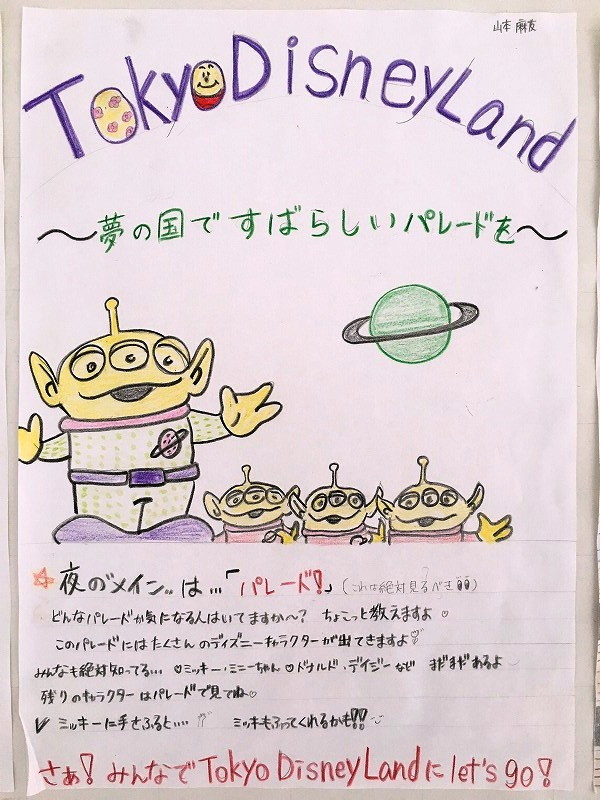 山本 麻友
Tokyo DisneyLand
〜夢の国ですばらしいパレードを〜
☆夜のメイン..は…「パレード!」(これは絶対見るべき!!)
どんなパレードか気になる人はいてますか〜? ちょこっと教えますよ♡
このパレードにはたくさんのディズニーキャラクターが出てきますよ
みんなも絶対知ってる… ♡ミッキー・ミニーちゃん♡ドナルド・デイジーなど まだまだあるよ
残りのキャラクターはパレードで見てね♡
✓ミッキーに手をふると…. ミッキもふってくれるかも!!
さぁ!みんなでTokyo DisneyLandにlet's go!